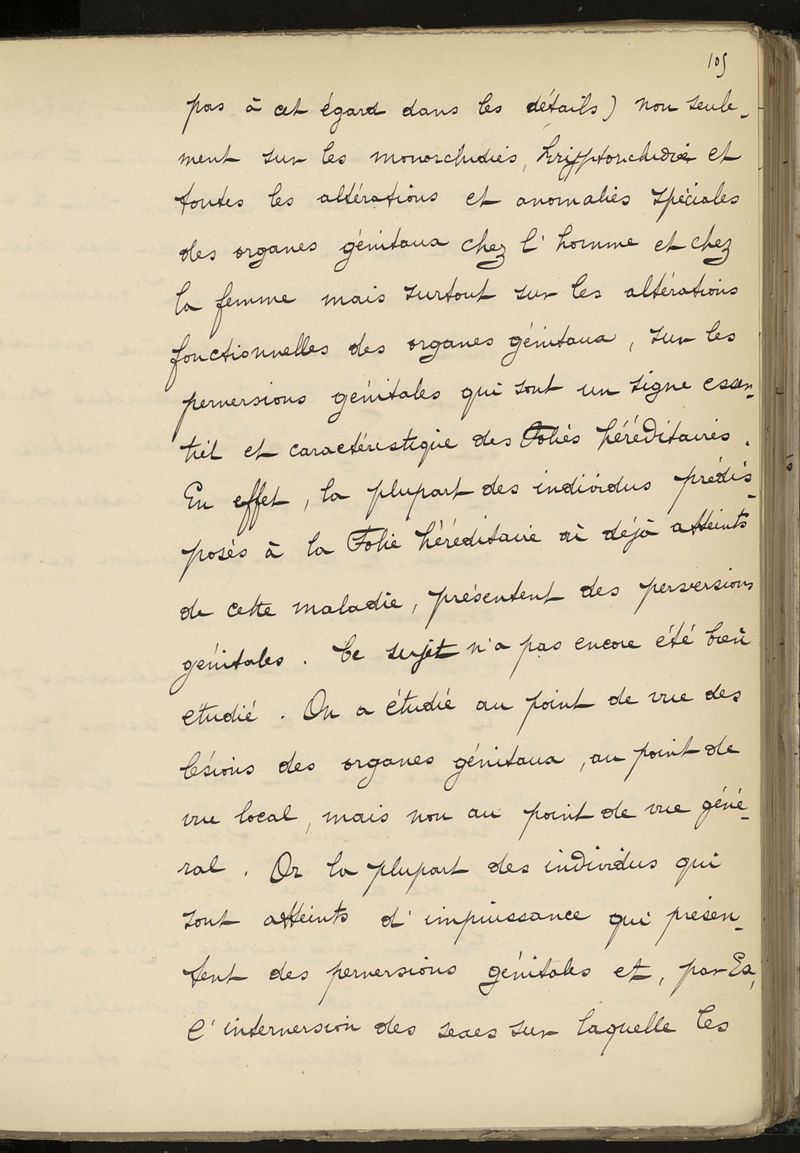 105
pas à cet égard dans les détails) non seule-
ment sur les monorchidies, kryptorchidie et
toutes les altérations et anomalies spéciales
des organes génitaux chez l'homme et chez
la femme mais surtout sur les altérations
fonctionnelles des organes génitaux, sur les
perversions génitales qui sont un signe essen-
tiel et caractéristique des Folies héréditaires.
En effet, la plupart des individus prédis-
posés à la Folie héréditaire ou déjà atteints
de cette maladie, présentent des perversions
génitales. Ce sujet n'a pas encore été bien
étudié. On a étudié au point de vue des
lésions des organes génitaux, au point de
vue local, mais non au point de vue géné-
ral. Or la plupart des individus qui
sont atteints d'impuissance qui présen-
tent des perversions génitales et, par Ex,
l'interversion des sexes sur laquelle les